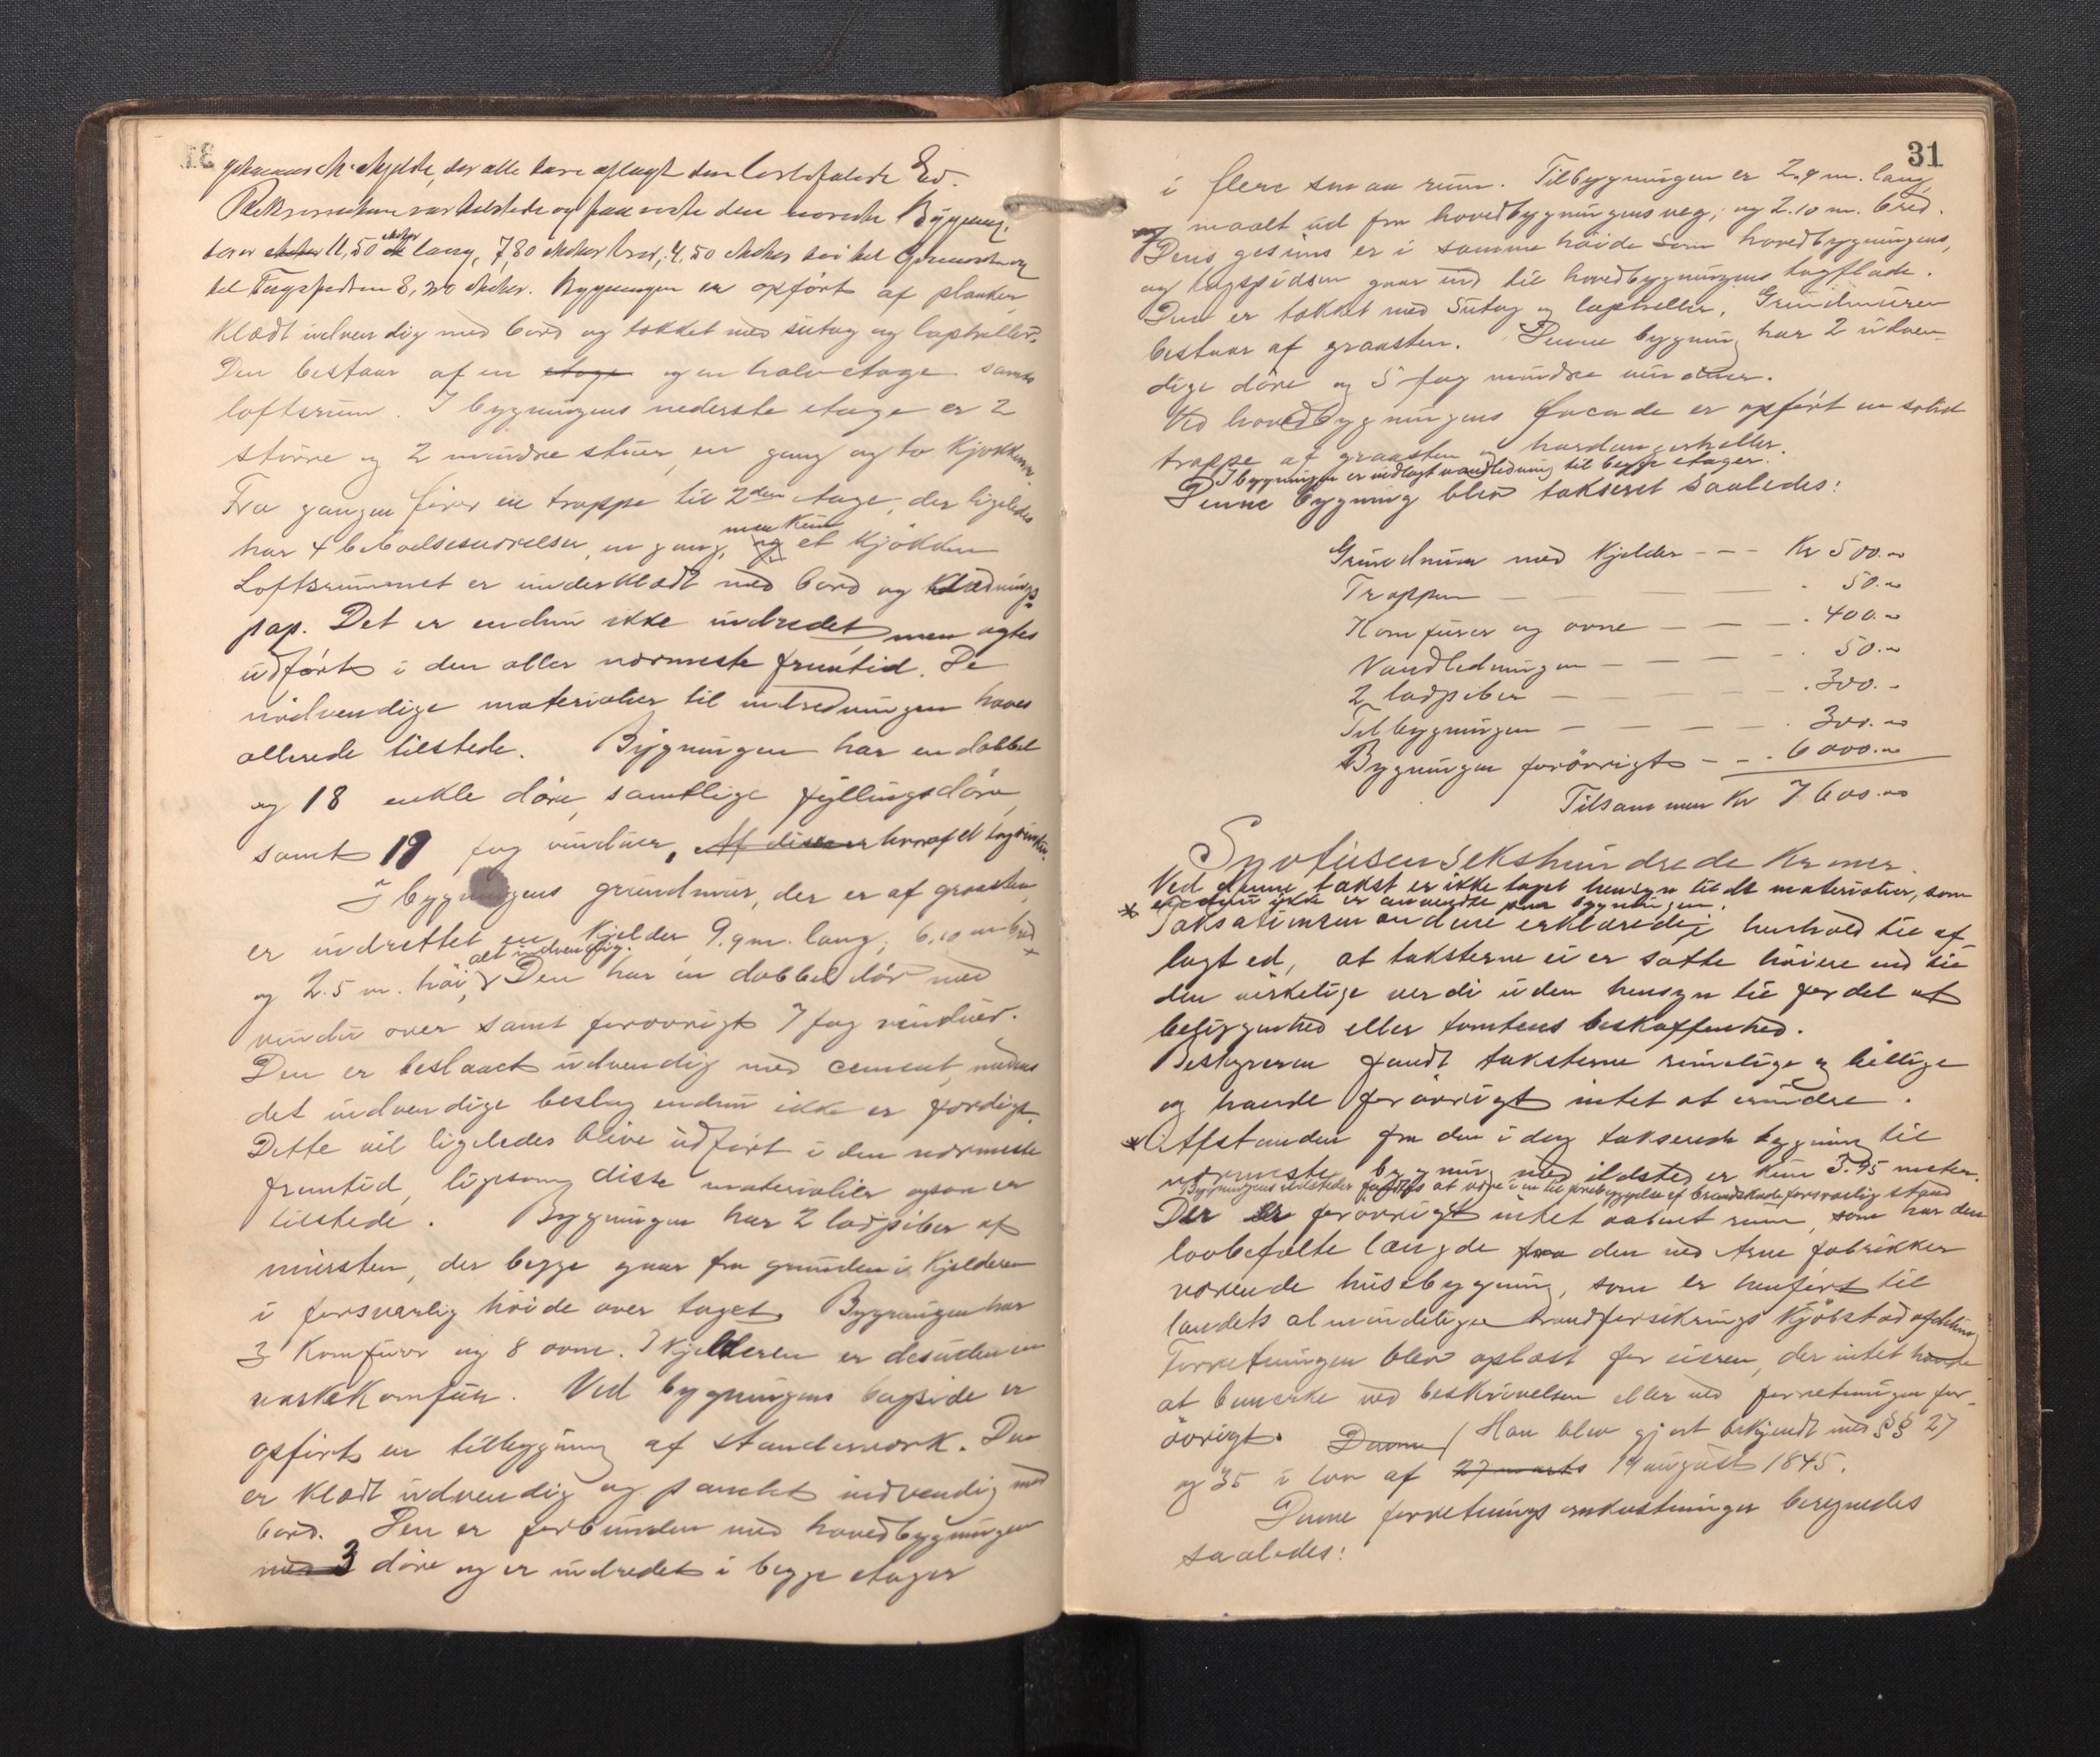 Johannes M. Mjelde, der alle have aflagt den lovbefalede Ed.
Rekvirenten var tilstede og paaviste den
Bygning,
der er 11,50 meter lang, 7,80 Meter bred, 4,50 Meter høi til Gesimsen og
til Tagspidsen 8,20 Meter. Bygningen er opført af planker,
klædt udvendig med bord og tækket med sutag og lapheller.
Den bestaar af en etage og en halv etage samt
loftsrum. I bygningens nederste etage er 2
større og 2 mindre stuer, en gang og to kjøkkener.
Fra gangen fører en trappe til 2den etage, der ligeledes
men kun
har 4 beboelsesværelser, en gang, og et kjøkken
Loftsrummet er underklædt med bord og klædnings-
pap. Det er endnu ikke indredet, men agtes
udført i den aller nærmeste fremtid. De
nødvendige materialier til indredningen haves
allerede tilstede. Bygningen har en dobbel
og 18 enkle døre, samtlige fyllingsdøre,
samt 19 fag vinduer, Af disse er hvoraf et tagvindu.
I bygningens grundmur, der er af graasten,
er indrettet en kjelder, 9.9 m. lang, 6,10 m bred
alt indvendig.
og 2.5 m. høi, Den har en dobbel dør med
vindu over samt forøvrigt 7 fag vinduer.
Den er beslaaet udvendig med cement, medens
det indvendige beslag endnu ikke er færdigt.
Dette vil ligeledes blive udført i den nærmeste
fremtid, ligesom disse materialier ogsaa er
tilstede. Bygningen har 2 ladpiber af
mursten, der begge gaar fra grunden i kjelderen
i forsvarlig høide over taget. Bygningen har
3 komfurer og 8 ovne. I kjelderen er desuden en
vaskekomfur. Ved bygningens bagside er
opført en tilbygning af standerværk. Den
er klædt udvendig og panelet indvendig med
bord. Den er forbunden med hovedbygningen
med 3 døre og er indredet i begge etager
31
i flere smaa rum. Tilbygningen er 2.9 m. lang,
maalt ud fra hovedbygningens væg, og 2.10 m. bred.
Dens gesims er i samme høide som hovedbygningens,
og tagspidsen gaar ind til hovedbygningens tagflade.
Den er tækket med sutag og lapheller. Grundmuren
bestaar af graasten. Denne bygning har 2 udven-
dige døre og 5 fag mindre vinduer.
Ved hovedbygningens facade er opført en solid
trappe af graasten og hardangerheller.
I bygningen er indlagt vandledning til begge etager.
Denne bygning blev takseret saaledes:
Grundmur med kjelder - - - Kr 500.-
Trappen - - - 50.-
Komfurer og ovne - - - 400.-
Vandledningen - - - 50.-
2 ladpiber - - - 300.-
Tilbygningen - - - 300.-
Bygningen forøvrigt - - - 6000.-
Tilsammen Kr 7600.-
Syvtusensekshundrede Kroner.
Ved denne takst er ikke taget hensyn til de materialier, som
endnu ikke er anvendte paa bygningen.
* Taksationsmændene erklærede, i henhold til af-
lagt ed, at taksterne ei er satte høiere end til
den virkelige verdi uden hensyn til fordel af
beliggenhed eller tomtens beskaffenhed.
Bestyreren fandt taksterne rimelige og billige
og havde forøvrigt intet at erindre.
* Afstanden fra den i dag takserede bygning til
nærmeste bygning med ildsted er kun 3.95 meter.
Bygningens ildsteder fandtes at være i en til forebyggelse af brandskade forsvarlig stand
Der er forøvrigt intet aabent rum, som har den
lovbefalte længde fra den ved Arne fabrikker
værende husebygning, som er henført til
landets almindelige brandforsikrings kjøbstadafdeling
Forretningen blev oplæst for eieren, der intet havde
at bemerke ved beskrivelsen eller ved forretningen for-
øvrigt. Denne / Han blev gjort bekjendt med §§ 27
og 35 i lov af 27 marts 19 august 1845.
Denne forretnings omkostninger beregnedes
saaledes: